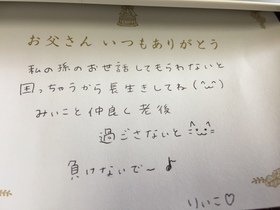 お父さん いつもありがとう
私の孫のお世話してもらわないと
困っちゃうから長生きしてね(^_^)
みいこと仲良く老後
過ごさないと
負けないで〜♪
りいこ♡